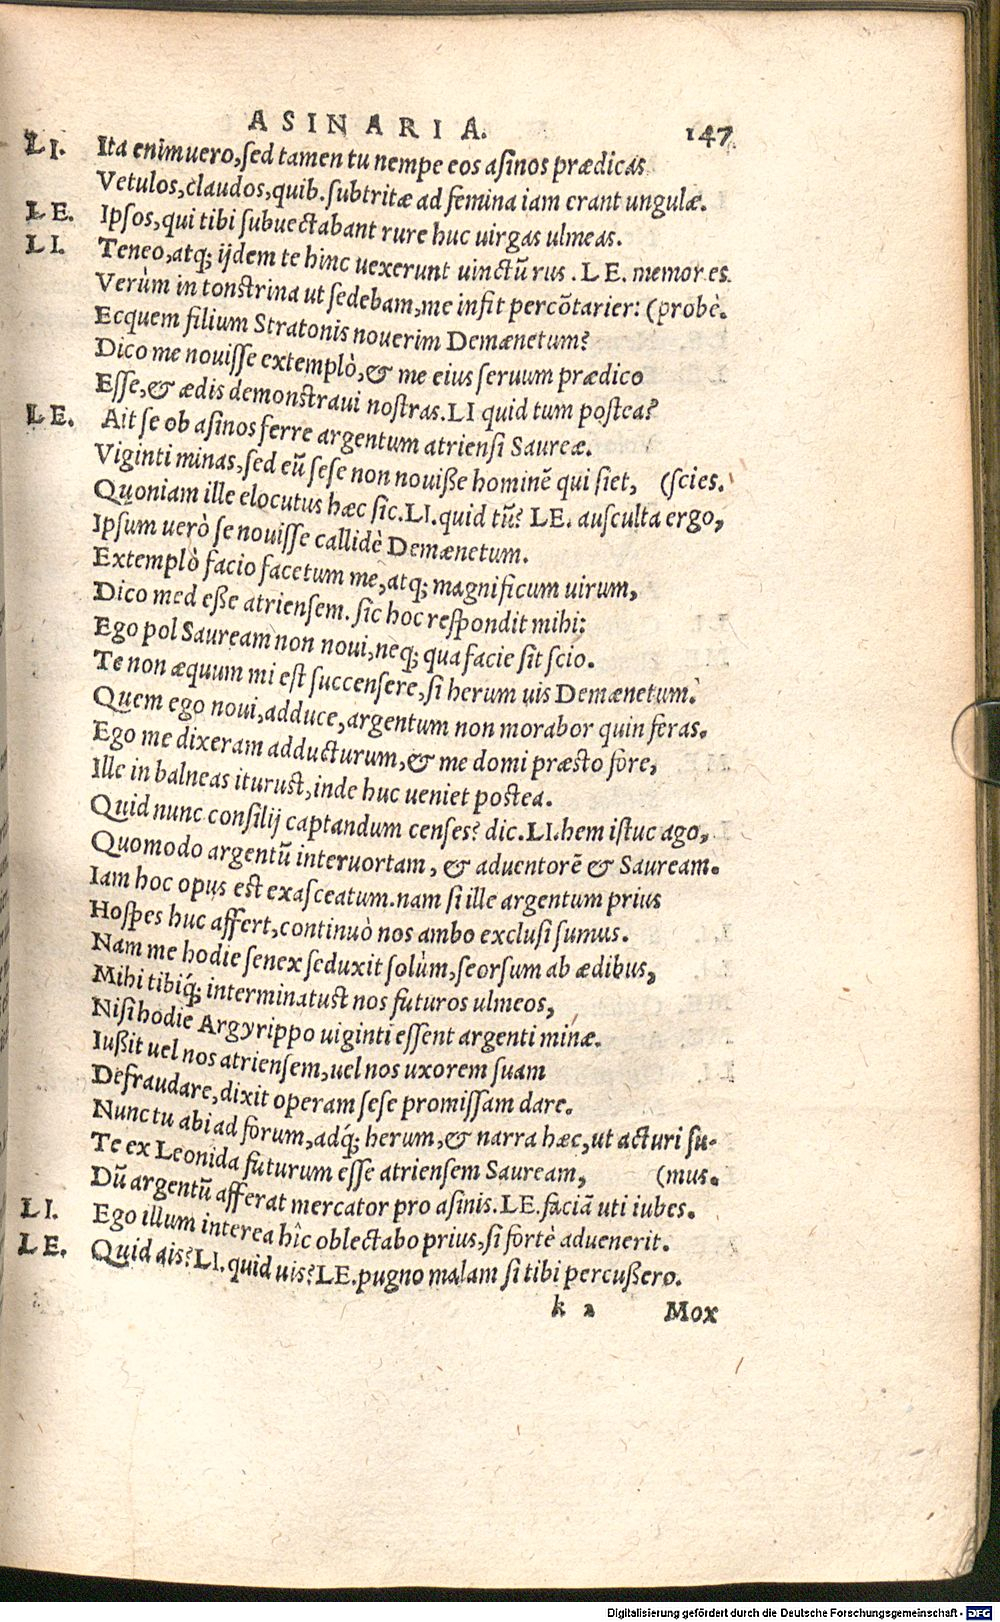 ASINARIA. 147
LI. Ita enimuero, sed tamen tu nempe eos asinos prædicas
Vetulos, claudos, quib. subtritæ ad femina iam erant ungulæ.
LE. Ipsos, qui tibi subuectabant rure huc uirgas ulmeas.
LI. Teneo, atq; ijdem te hinc uexerunt uinctũ rus. LE. memor es.
Verùm in tonstrina ut sedebam, me infit percõtarier: (probè.
Ecquem filium Stratonis nouerim Demænetum?
Dico me nouisse extemplò, & me eius seruum prædico
Esse, & ædis demonstraui nostras. LI quid tum postea?
LE. Ait se ob asinos ferre argentum atriensi Saureæ.
Viginti minas, sed eũ sese non nouiße hominẽ qui siet, (scies.
Quoniam ille elocutus hæc sic. LI. quid tũ? LE. ausculta ergo,
Ipsum uerò se nouisse callidè Demænetum.
Extemplò facio facetum me, atq; magnificum uirum,
Dico med eße atriensem. sic hoc respondit mihi:
Ego pol Sauream non noui, neq; qua facie sit scio.
Te non æquum mi est succensere, si herum uis Demænetum.
Quem ego noui, adduce, argentum non morabor quin feras.
Ego me dixeram adducturum, & me domi præsto fore,
Ille in balneas iturust, inde huc ueniet postea.
Quid nunc consilij captandum censes? dic. LI. hem istuc ago,
Quomodo argentũ interuortam, & aduentorẽ & Sauream.
Iam hoc opus est exasceatum. nam si ille argentum prius
Hospes huc affert, continuò nos ambo exclusi sumus.
Nam me hodie senex seduxit solùm, seorsum ab ædibus,
Mihi tibiq́; interminatust nos futuros ulmeos,
Nisi hodie Argyrippo uiginti essent argenti minæ.
Iußit uel nos atriensem, uel nos uxorem suam
Defraudare, dixit operam sese promissam dare.
Nunc tu abi ad forum, adq́; herum, & narra hæc, ut acturi su-
Te ex Leonida futurum esse atriensem Sauream, (mus.
Dũ argentũ afferat mercator pro asinis. LE. faciã uti iubes.
LI. Ego illum interea hîc oblectabo prius, si fortè aduenerit.
LE. Quid ais? LI. quid uis? LE. pugno malam si tibi percußero.
k 2 Mox
Digitalisierung gefördert durch die Deutsche Forschungsgemeinschaft - DFG